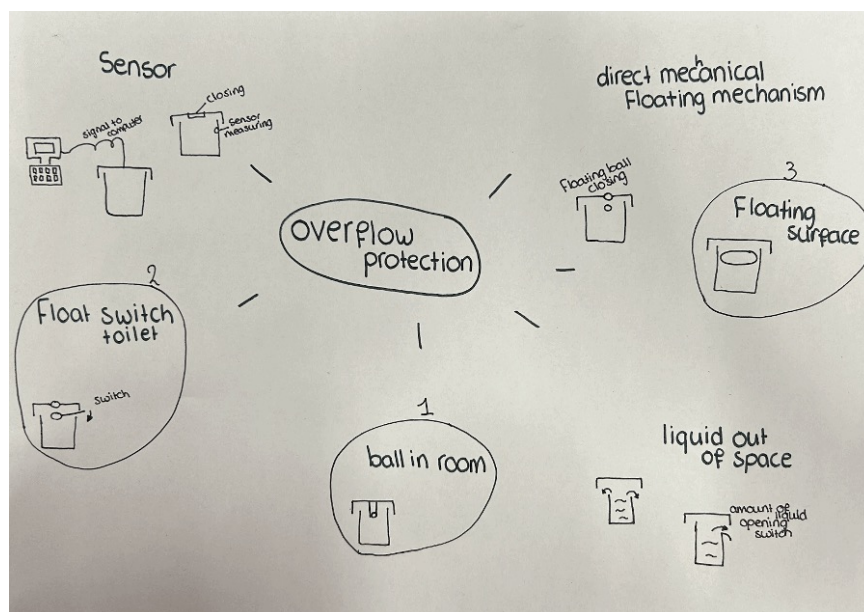 Sensor
signal to
computer
closing
sensor
measuring
direct mechanical
Floating mechanism
Floating ball
closing
3
Floating
surface
overflow
protection
2
Float switch
toilet
switch
1
ball in room
liquid out
of space
amount of
liquid
opening
switch